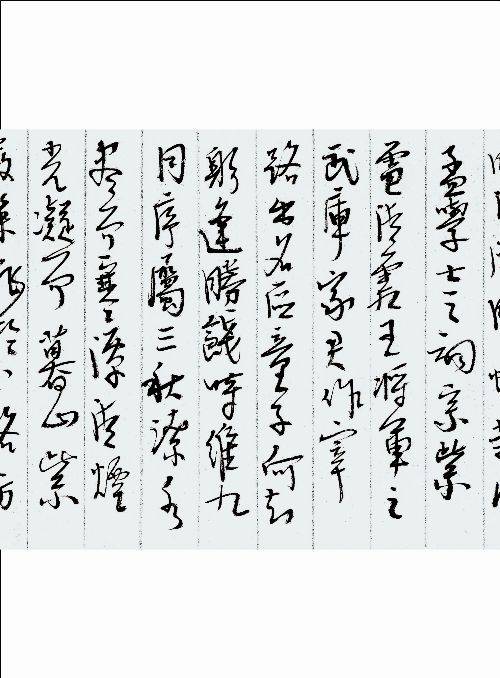 孟學士之詞宗紫
電清霜王將軍之
武庫家君作宰
路出名區童子何知
躬逢勝餞時維九
月序屬三秋潦水
盡而寒潭清煙
光凝而暮山紫